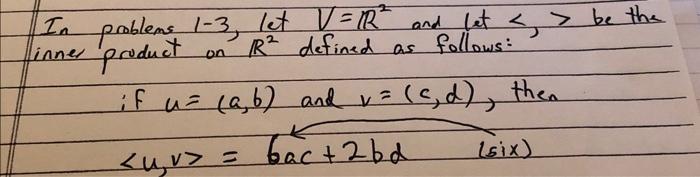 In problems 1-3, let V = ℝ² and let < , > be the
inner product on ℝ² defined as follows:
if u = (a,b) and v = (c,d), then
<u,v> = 6ac + 2bd (six)